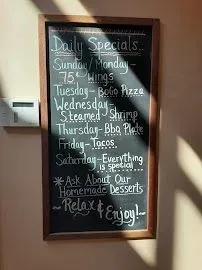 Daily Specials..
Sunday/Monday-
75¢ Wings
Tuesday- BoGo Pizza
Wednesday-
Steamed Shrimp
Thursday- Bbq Plate
Friday- Tacos
Saturday-Everything
is special
*Ask About Our
Homemade Desserts
~Relax &
Enjoy!~